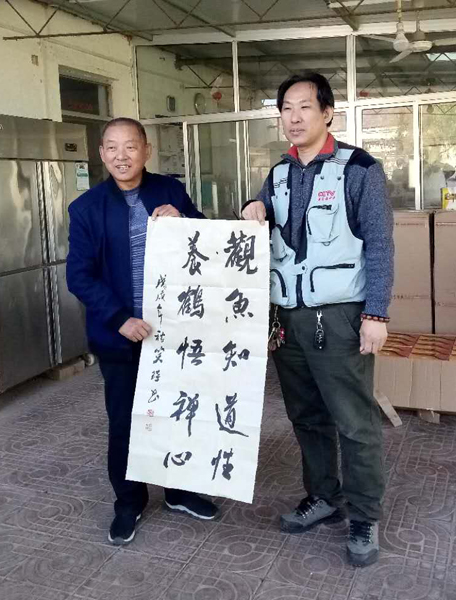 觀魚知道性
養鶴悟禪心
戊戌年
CCTV